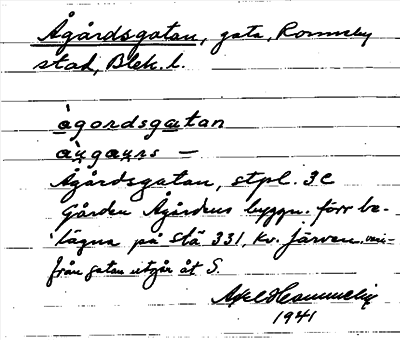 Ågårdsgatan, gata, Ronneby
stad, Blek. l.
àgordsgatan
àu̯gau̯rs —
Ågårdsgatan, stpl. 3C
Gården Ågårdens byggn. förr be-
lägna på stä 331, kv. Järven, vari-
från gatan utgår åt S.
Axel Hemmelig
1941